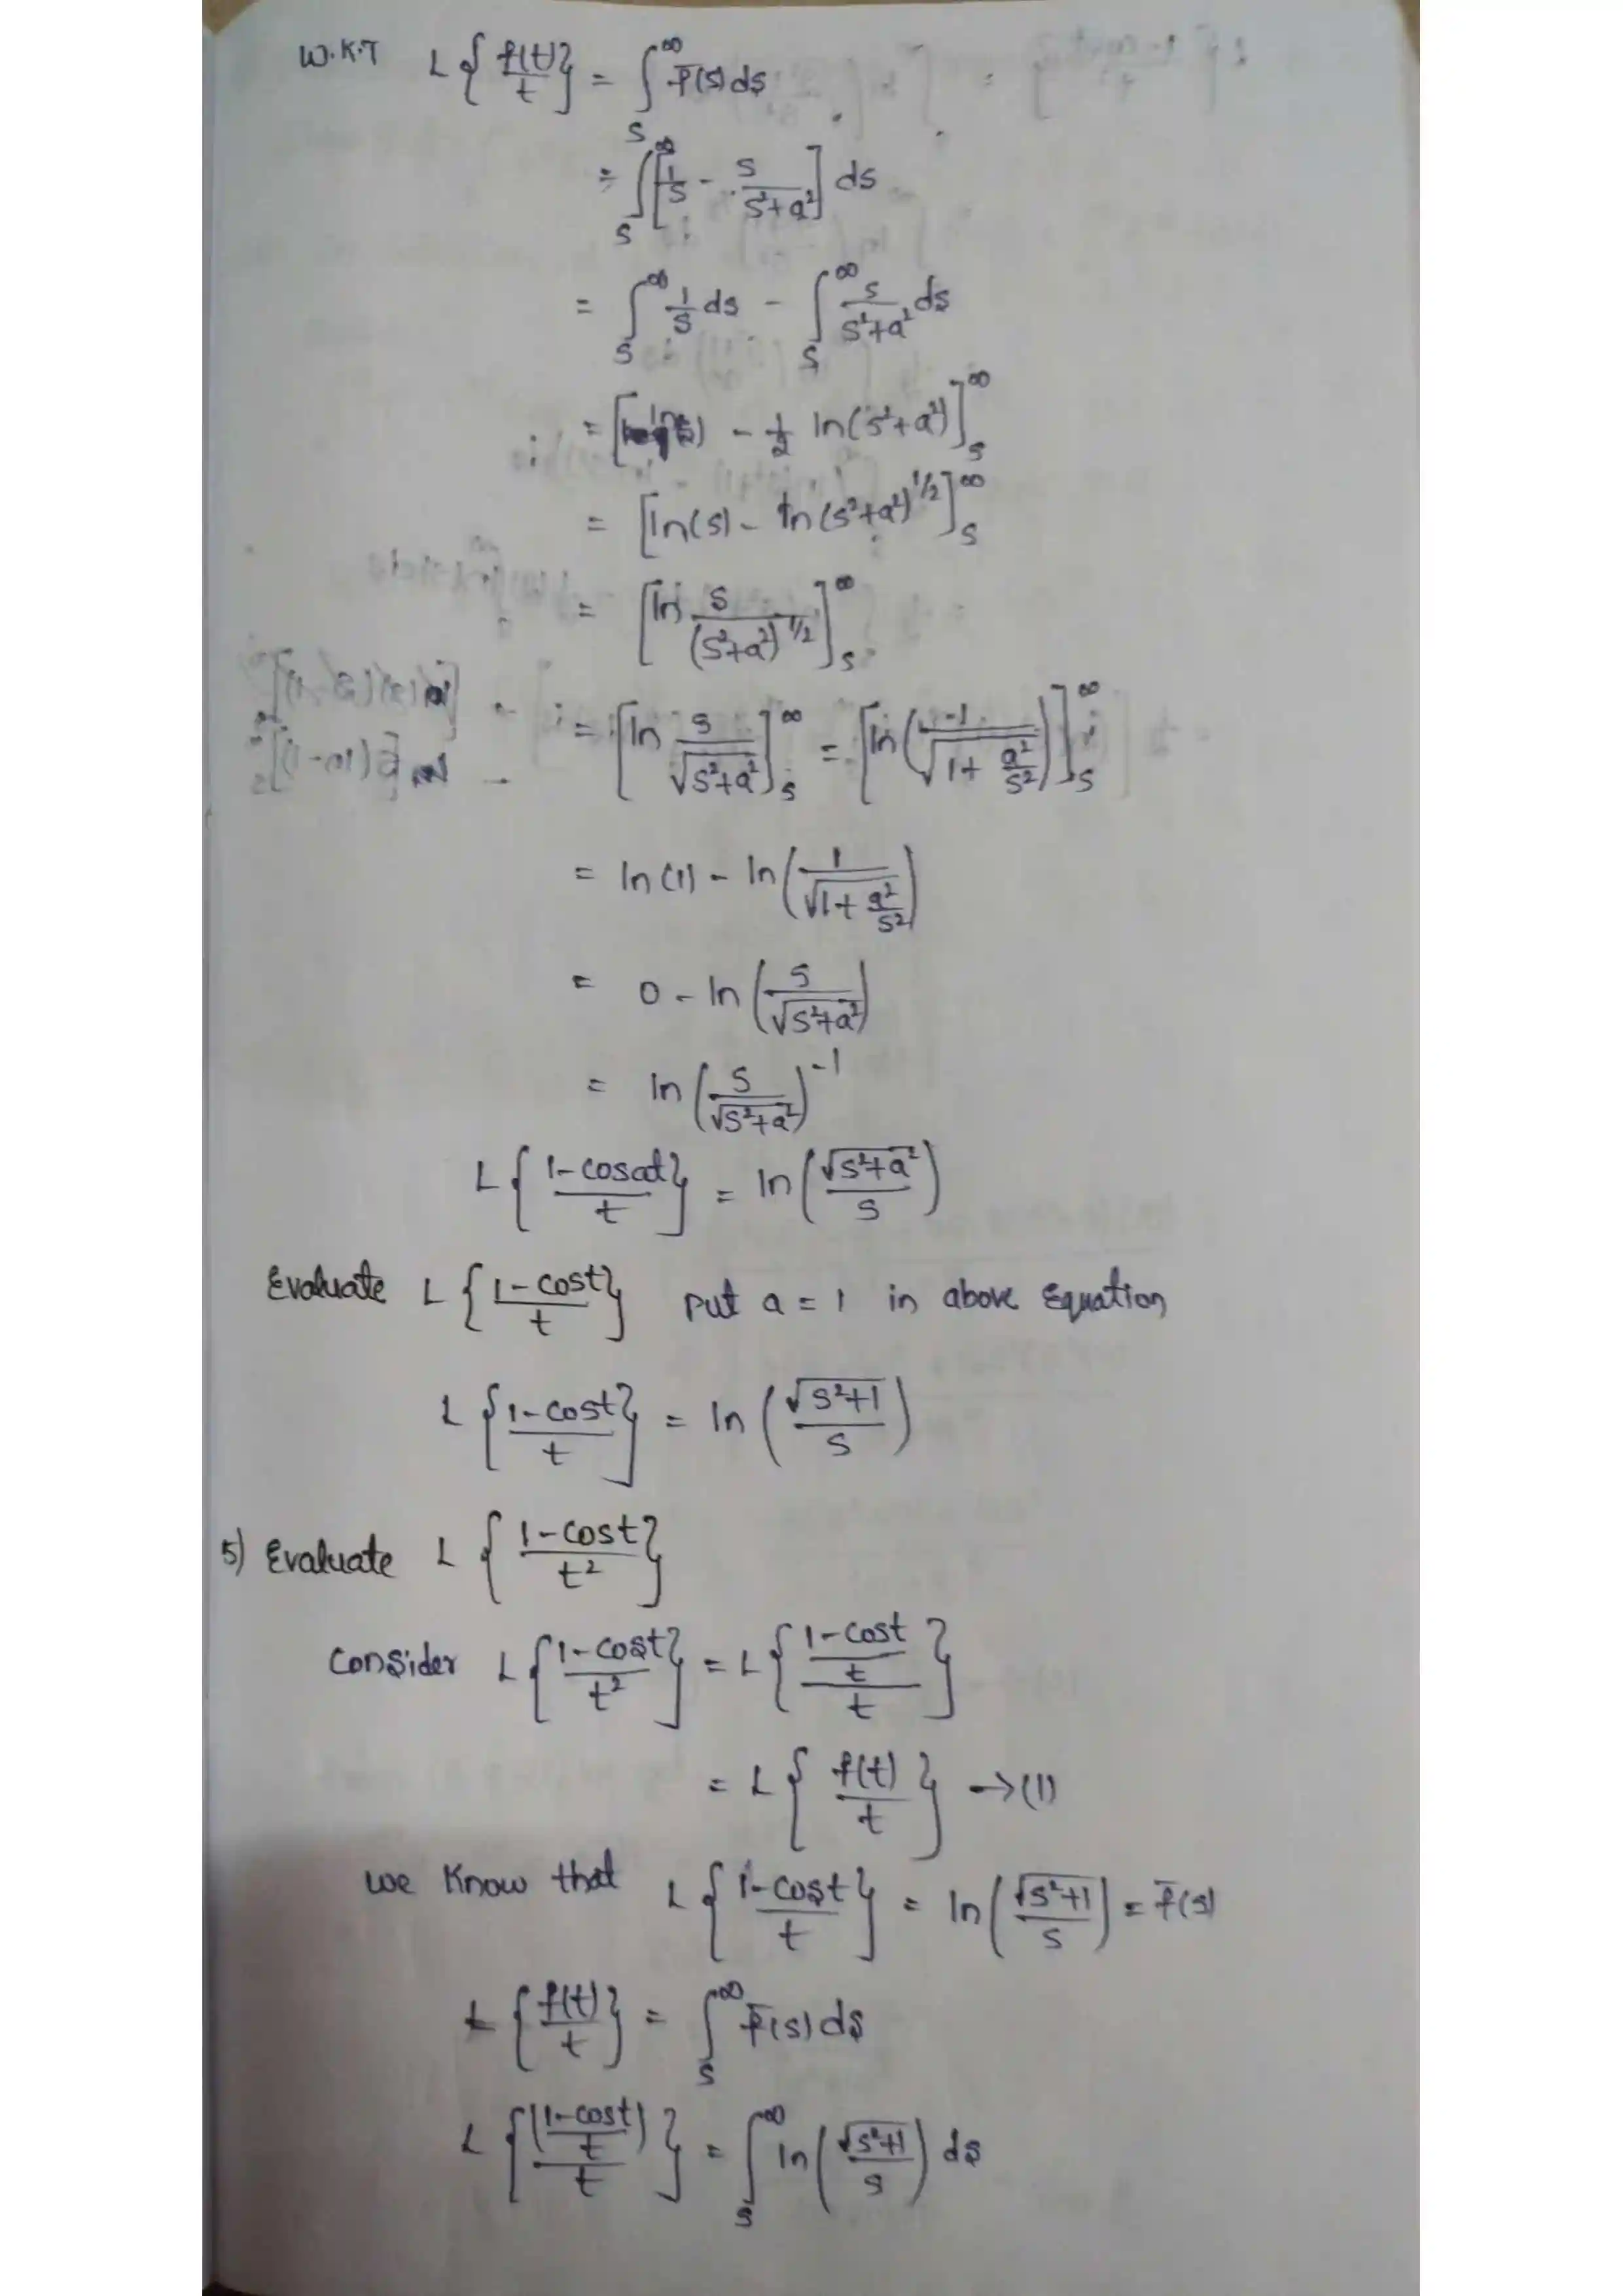 W.K.T L{f(t)/t} = ∫_s^∞ f̄(s) ds
= ∫_s^∞ [1/s - s/(s²+a²)] ds
= ∫_s^∞ 1/s ds - ∫_s^∞ s/(s²+a²) ds
= [ln(s) - 1/2 ln(s²+a²)]_s^∞
= [ln(s) - ln(s²+a²)^1/2]_s^∞
= [ln s/(s²+a²)^1/2]_s^∞
= [ln s/√(s²+a²)]_s^∞ = [ln(1/√(1+a²/s²))]_s^∞
= ln(1) - ln(1/√(1+a²/s²))
= 0 - ln(s/√(s²+a²))
= ln(s/√(s²+a²))^-1
L{(1-cosat)/t} = ln(√(s²+a²)/s)
Evaluate L{(1-cost)/t} put a = 1 in above Equation
L{(1-cost)/t} = ln(√(s²+1)/s)
5) Evaluate L{(1-cost)/t²}
Consider L{(1-cost)/t²} = L{((1-cost)/t)/t}
= L{f(t)/t} → (1)
we know that L{(1-cost)/t} = ln(√(s²+1)/s) = f̄(s)
L{f(t)/t} = ∫_s^∞ f̄(s) ds
L{((1-cost)/t)/t} = ∫_s^∞ ln(√(s²+1)/s) ds